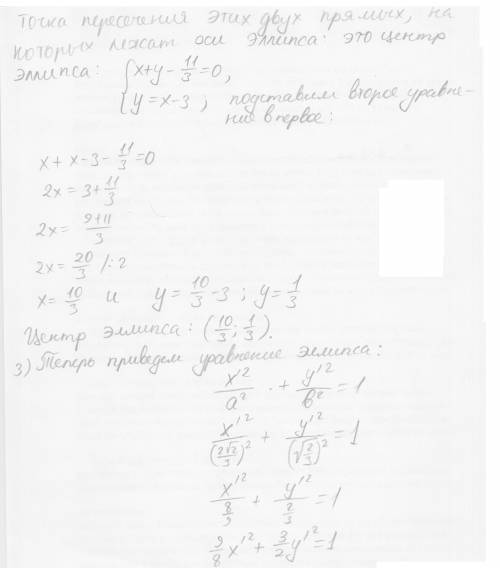 Точка пересечения этих двух прямых, на
которых лежат оси эллипса: это центр
эллипса: { x+y - 11/3 = 0,
{ y = x-3 ; подставим второе уравне-
ние в первое:
x + x - 3 - 11/3 = 0
2x = 3 + 11/3
2x = (9+11)/3
2x = 20/3 /: 2
x = 10/3 и y = 10/3 - 3 ; y = 1/3
Центр эллипса: (10/3 ; 1/3).
3) Теперь приведем уравнение эллипса:
x'²/a² + y'²/b² = 1
x'²/(2√2/3)² + y'²/(√(2/3))² = 1
x'²/(8/9) + y'²/(2/3) = 1
9/8 x'² + 3/2 y'² = 1